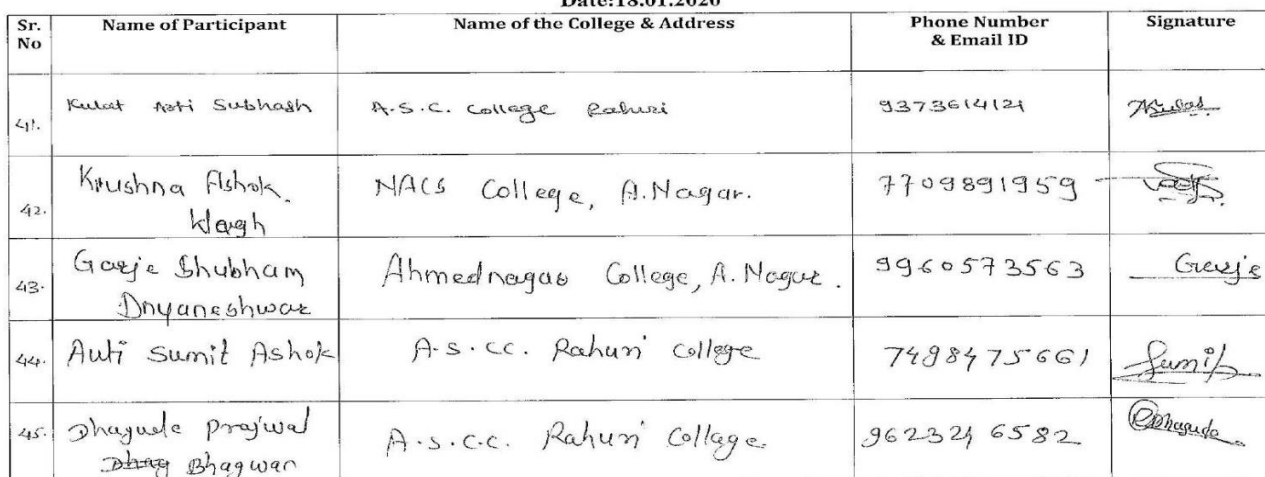 Date:18.01.2020
Sr. No Name of Participant Name of the College & Address Phone Number & Email ID Signature
41. Kulat Arti Subhash A.S.C. College Rahuri 9373614121 Kulat
42. Krushna Ashok Wagh NACS College, A.Nagar. 7709891959
43. Garje Shubham Dnyaneshwar Ahmednagar College, A.Nagar. 9960573563 Garje
44. Auti Sumit Ashok A.S.CC. Rahuri College 7498475661 Sumit
45. Dhagude Prajwal Dhag Bhagwan A.S.C.C. Rahuri Collage 9623246582 Dhagude